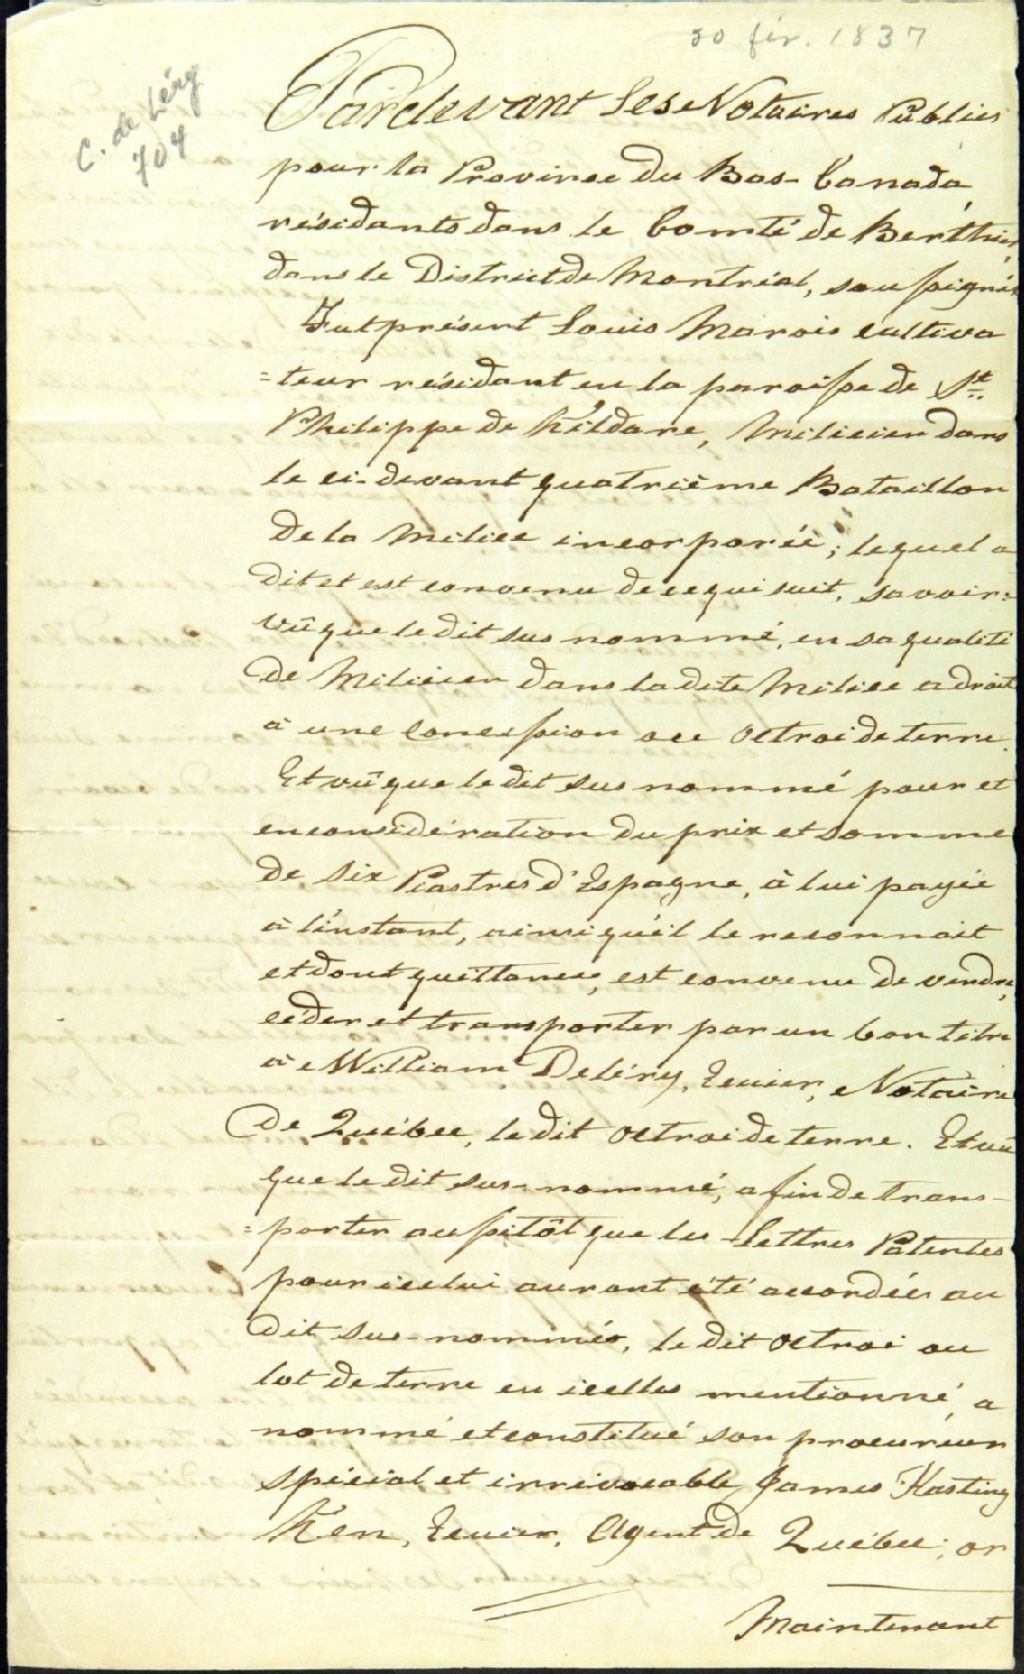 20 fév. 1837
C. de Léry
704
Pardevant les Notaires Publics
pour la Province du Bas-Canada
résidants dans le Comté de Berthier,
dans le District de Montréal, soussignés
Fut présent Louis Marois cultiva
=teur résidant en la paroisse de St.
Philippe de Kildare, Milicien dans
le ci-devant quatrième Bataillon
de la Milice incorporée; lequel a
dit et est convenu de ce qui suit, savoir:
vû que le dit sus nommé, en sa qualité
de Milicien dans la dite Milice a droit
à une concession ou octroi de terre.
Et vû que le dit sus nommé pour et
en considération du prix et somme
de six Piastres d'Espagne, à lui payée
à l'instant, ainsi qu'il le reconnait
et dont quittance, est convenu de vendre,
céder et transporter par un bon titre
à William Deléry, Ecuier, Notaire
de Québec, le dit octroi de terre. Et vû
que le dit sus-nommé, afin de trans-
=porter aussitôt que les lettres Patentes
pour icelui auront été accordées au
dit sus-nommé, le dit octroi ou
lot de terre en icelles mentionné, a
nommé et constitué son procureur
spécial et irrévocable, James Hasting
Kerr, Ecuier, Agent de Québec; or
Maintenant